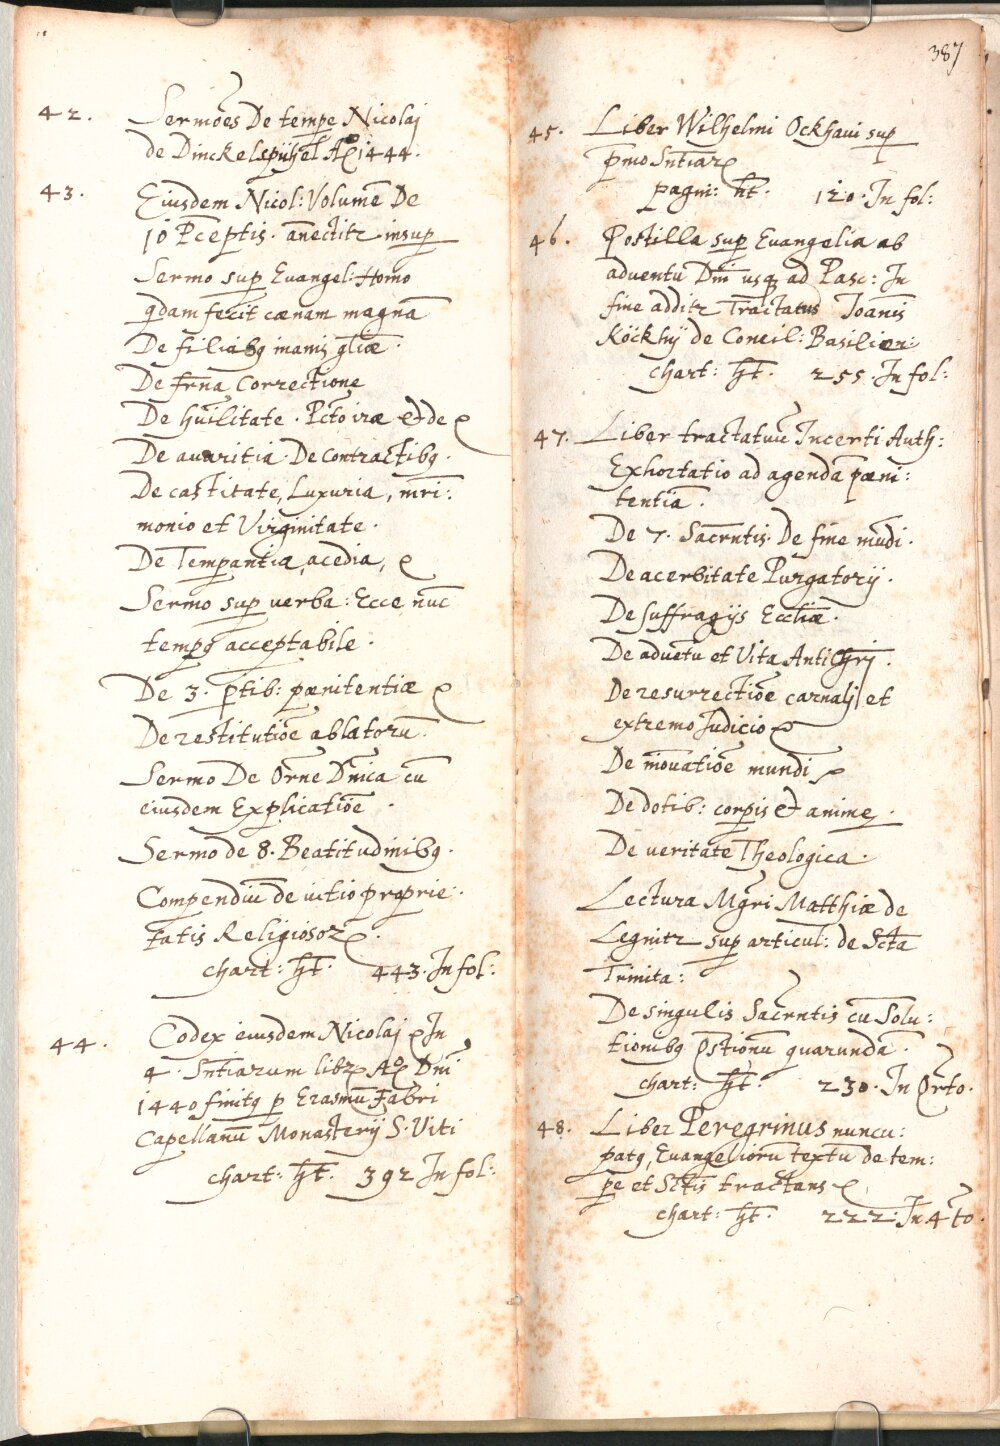 42. Sermões De tempe Nicolaj
de Dinckelspühel Aº 1444.
43. Eiusdem Nicol: Volumē De
10 Pceptis. ānectitr insup
Sermo sup Euangel: Homo
qdam fecit cænam magnā
De filiabq inanis gliæ.
De frna Correctione
De hūilitate. Pcto iræ & de
De auaritia. De Contractibq.
De castitate, Luxuria, mri:
monio et Virginitate.
De Temperantia, acedia,
Sermo sup uerba: Ecce nūc
tempq acceptabile.
De 3. ptib: pænitentiæ
De restitutiōe ablatorū.
Sermo De Orne Dnica cū
eiusdem Explicatiōe.
Sermo de 8. Beatitudinibq.
Compendiū de uitio proprie:
tatis Religiosor.
chart: ht. 443. In fol:
44. Codex eiusdem Nicolaj In
4. Sntiarum libr Aº Dni
1440 finitq p Erasmū Fabri
Capellanū Monasterij S: Viti
chart: ht. 392 In fol:
387
45. Liber Wilhelmi Ockhaui sup
pmo Sntiar
pagin: ht. 120. In fol:
46. Postilla sup Euangelia ab
aduentu Dni usq ad Pasc: In
fine additr Tractatus Joanis
Köckhij de Concil: Basilien:
chart: ht. 255. In fol:
47. Liber tractatuū Incerti Auth:
Exhortatio ad agendā pæni:
tentiā.
De 7. Sacrntis. De fine mūdi.
De acerbitate Purgatorij.
De suffragijs Eccliæ.
De aduētu et Vita Antichrj.
De resurrectiōe carnalj et
extremo Judicio
De inouatiōe mundi
De dotib: corpis & anime.
De ueritate Theologica.
Lectura Mgri Matthiæ de
Legnitz sup articul: de Scta
Trinita:
De singulis Sacrntis cū Solu:
tionibq Qstionū quarundā.
chart: ht: 230. In Qrto.
48. Liber Peregrinus nuncu:
patq, Euangeliorū textū de tem:
pe et Sctis tractans
chart: ht. 222. In 4to.